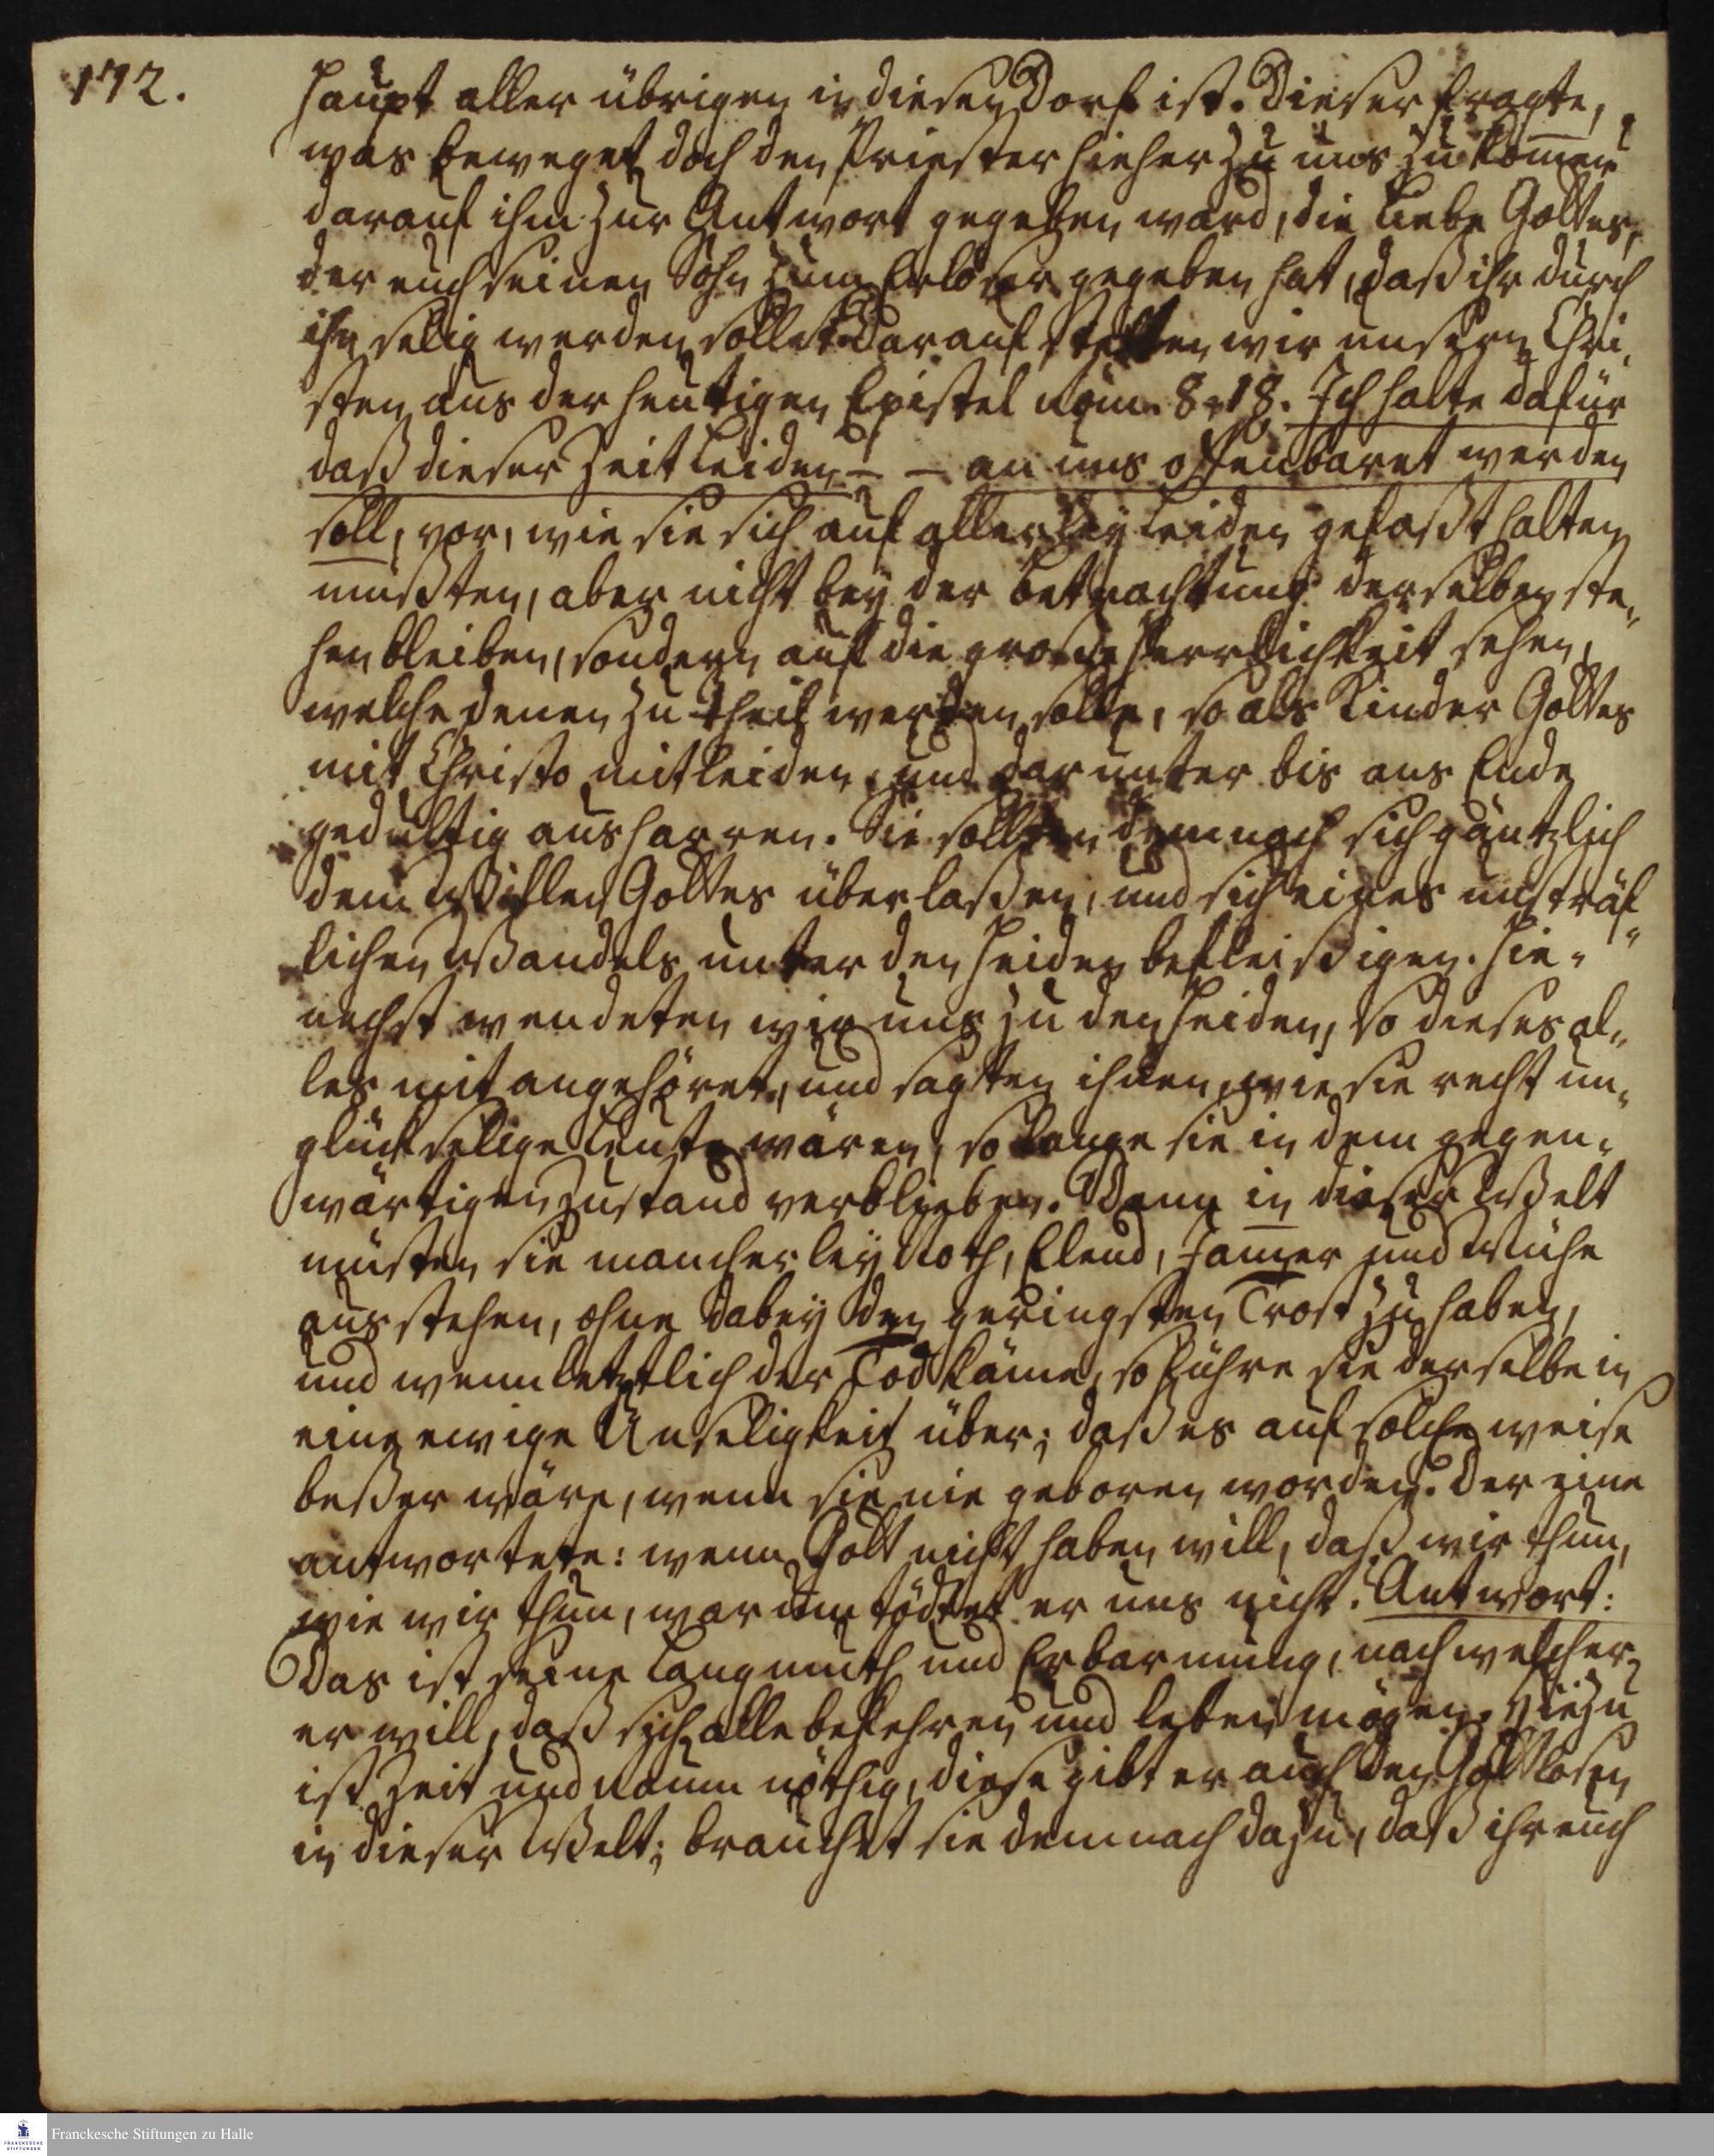 172.
Haupt aller übrigen in diesen Dorf ist. Dieser fragte,
was beweget doch den Priester hieher zu uns zu kom̅en?
darauf ihm zur Antwort gegeben ward, die Liebe Gottes,
der euch seinen Sohn zum Erlöser gegeben hat, daß ihr durch
ihn selig werden sollet. Darauf stelten wir unsern Chri-
sten aus der heutigen Epistel Röm. 8, 18. Ich halte dafür
daß dieser Zeit Leiden – – an uns offenbaret werden
soll, vor, wie sie sich auf allerley Leiden gefaßt halten
müßten, aber nicht bey der Betrachtung derselben ste-
hen bleiben, sondern auf die große Herrlichkeit sehen,
welche denen zu theil werden solle, so als Kinder Gottes
mit Christo mitleiden, und darunter bis ans Ende
gedultig ausharren. Sie sollten demnach sich gäntzlich
dem Willen Gottes überlaßen, und sich eines unsträf-
lichen Wandels unter den Heiden befleißigen. Hie-
nechst wendeten wir uns zu den Heiden, so dieses al-
les mit angehöret, und sagten ihnen, wie sie recht un-
glückselige Leute wären, so lange sie in dem gegen-
wärtigen Zustand verblieben. Dann in dieser Welt
müsten sie mancherley Noth, Elend, Jam̅er und Mühe
ausstehen, ohne dabey den geringsten Trost zu haben,
und wenn letztlich der Tod käme, so führe sie derselbe in
eine ewige Unseligkeit über; daß es auf solche weise
beßer wäre, wenn sie nie geboren worden. Der eine
antwortete: wenn Gott nicht haben will, daß wir thun,
wie wir thun, warum tödtet er uns nicht? Antwort:
Das ist seine Langmuth und Erbarmung, nach welcher
er will, daß sich alle bekehren und leben mögen. Hiezu
ist Zeit und Raum nöthig, diese gibt er auch den Gottlosen
in dieser Welt; brauchet sie demnach dazu, daß ihr euch
Franckesche Stiftungen zu Halle